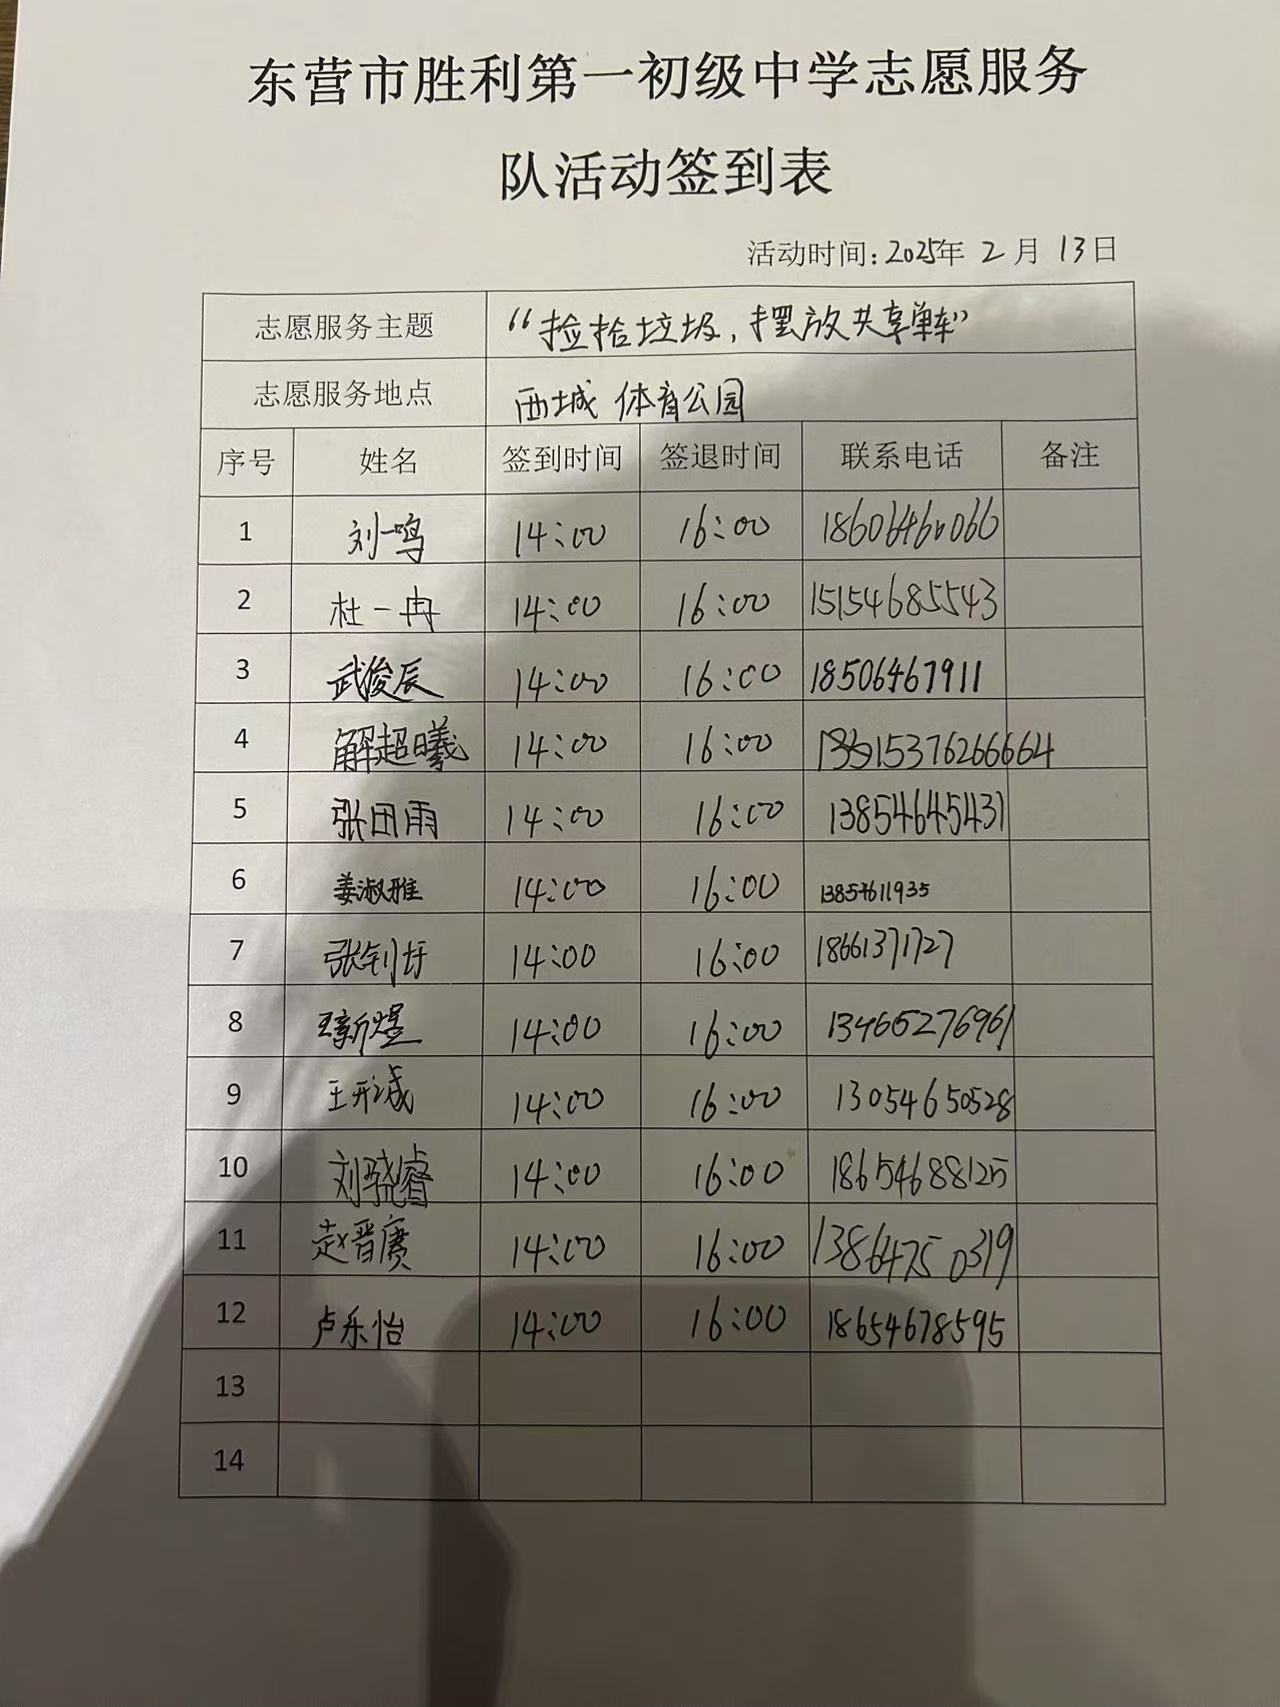 东营市胜利第一初级中学志愿服务
队活动签到表
活动时间:2025年 2 月 13日
志愿服务主题 “捡拾垃圾,摆放共享单车”
志愿服务地点 西城 体育公园
序号 姓名 签到时间 签退时间 联系电话 备注
1 刘一鸣 14:00 16:00 18606460066
2 杜一冉 14:00 16:00 15154685543
3 武俊辰 14:00 16:00 18506467911
4 解超曦 14:00 16:00 15376266664
5 张田雨 14:00 16:00 13854645431
6 姜淑雅 14:00 16:00 13854611935
7 张钊圩 14:00 16:00 18661371727
8 新煜 14:00 16:00 13465276961
9 王形诚 14:00 16:00 13054650528
10 刘骁睿 14:00 16:00 18654688125
11 赵晋赓 14:00 16:00 13864750319
12 卢乐怡 14:00 16:00 18654678595
13
14